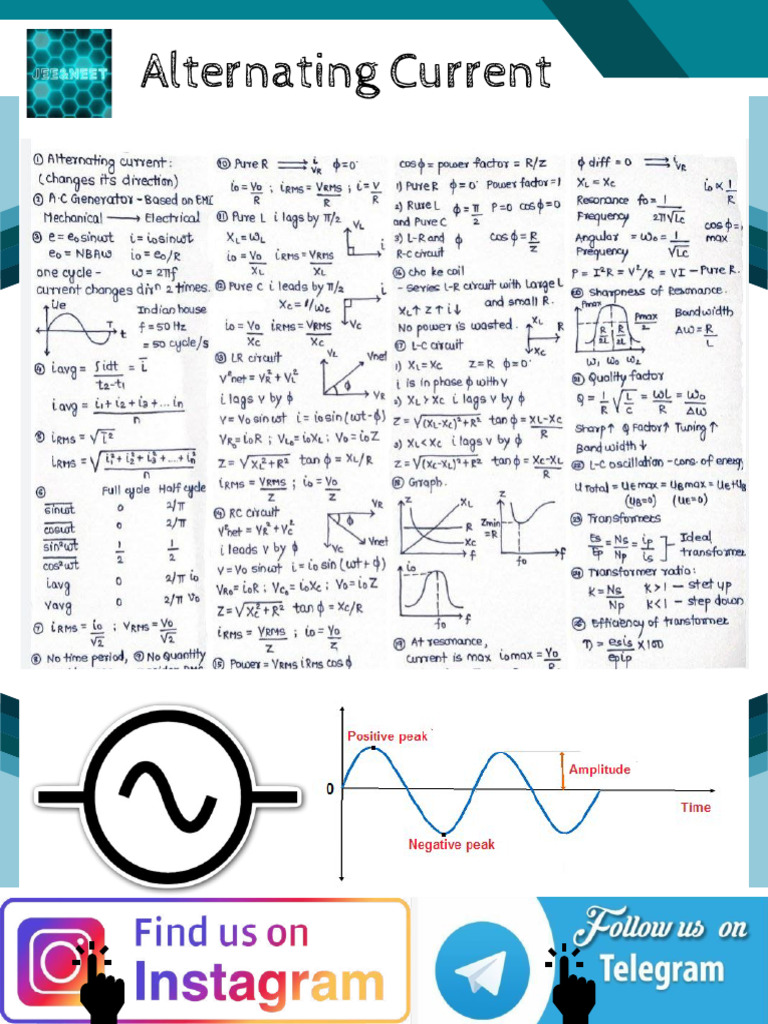 JEE&NEET
Alternating Current
① Alternating current:
(changes its direction)
② A·C Generator - Based on EMI
Mechanical → Electrical
③ e = e₀sinωt i = i₀sinωt
e₀ = NBAω i₀ = e₀/R
one cycle - ω = 2πf
current changes dirⁿ 2 times.
Indian house
f = 50 Hz
= 50 cycle/s
T
t
④ iavg = ∫idt / t₂-t₁ = i̅
iavg = i₁+i₂+i₃+...in / n
⑤ iRMS = √i̅²
iRMS = √(i₁²+i₂²+i₃²+...+in² / n)
⑥ Full cycle Half cycle
sinωt 0 2/π
cosωt 0 2/π
sin²ωt 1/2 1/2
cos²ωt
iavg 0 2/π i₀
vavg 0 2/π V₀
⑦ iRMS = i₀/√2 ; VRMS = V₀/√2
⑧ No time period, ⑨ No Quantity
⑩ Pure R ⇉ i VR ϕ=0°
i₀ = V₀/R ; iRMS = VRMS/R ; i = V/R
⑪ Pure L i lags by π/2
XL = ωL
VL
i
i₀ = V₀/XL iRMS = VRMS/XL
⑫ Pure C i leads by π/2
XC = 1/ωC
i
VC
i₀ = V₀/XC iRMS = VRMS/XC
⑬ LR circuit
VL
Vnet
ϕ
VR
V²net = VR² + VL²
i lags V by ϕ
V = V₀ sinωt i = i₀sin(ωt-ϕ)
VR₀ = i₀R ; VL₀ = i₀XL ; V₀ = i₀Z
Z = √XL²+R² tanϕ = XL/R
iRMS = VRMS/Z ; i₀ = V₀/Z
⑭ RC circuit
VR
ϕ
VC
Vnet
V²net = VR² + VC²
i leads V by ϕ
V = V₀ sinωt i = i₀ sin(ωt+ϕ)
VR₀ = i₀R ; VC₀ = i₀XC ; V₀ = i₀Z
Z = √XC²+R² tanϕ = XC/R
iRMS = VRMS/Z ; i₀ = V₀/Z
⑮ Power = VRMS iRMS cosϕ
cosϕ = power factor = R/Z
1) Pure R ϕ=0° Power factor=1
2) Pure L ϕ = π/2 P=0 cosϕ=0
and Pure C
3) L-R and ϕ cosϕ = R/Z
R-C circuit
⑯ choke coil
- series L-R circuit with large L
and small R.
XL↑ Z↑ i↓
No power is wasted.
XL
R
XC
⑰ L-C circuit
1) XL = XC Z=R ϕ=0°
i is in phase ϕ with V
2) XL > XC i lags V by ϕ
Z = √(XL-XC)²+R² tanϕ = XL-XC/R
3) XL<XC i lags V by ϕ
Z = √(XC-XL)²+R² tanϕ = XC-XL/R
⑱ Graph.
XL
R
XC
f
Z
Zmin
=R
f₀
f
i₀
f₀
f
⑲ At resonance,
current is max i₀max = V₀/R
ϕ diff = 0 ⇉ i VR
XL = XC
i₀ ∝ 1/R
Resonance f₀ = 1/2π√LC
Frequency
cosϕ =
max
Angular = ω₀ = 1/√LC
Frequency
P = I²R = V²/R = VI - Pure R.
⑳ Sharpness of Resonance.
Pmax
Pmax/2
R/2L R/2L
ω₁ ω₀ ω₂
Bandwidth
Δω = R/L
㉑ Quality factor
Q = 1/R √L/C = ωL/R = ω₀/Δω
Sharp↑ Q factor↑ Tuning↑
Bandwidth↓
㉒ L-C oscillation - cons. of energy
U Total = UE max = UB max = UE+UB
(UB=0) (UE=0)
㉓ Transformers
Es/Ep = Ns/Np = ip/is ] Ideal
transformer
㉔ Transformer radio:
K = Ns/Np K>1 - stet up
K<1 - step down
㉕ Efficiency of transformer
η = esis/epip × 100
Positive peak
Amplitude
0
Time
Negative peak
Find us on
Instagram
Follow us on
Telegram